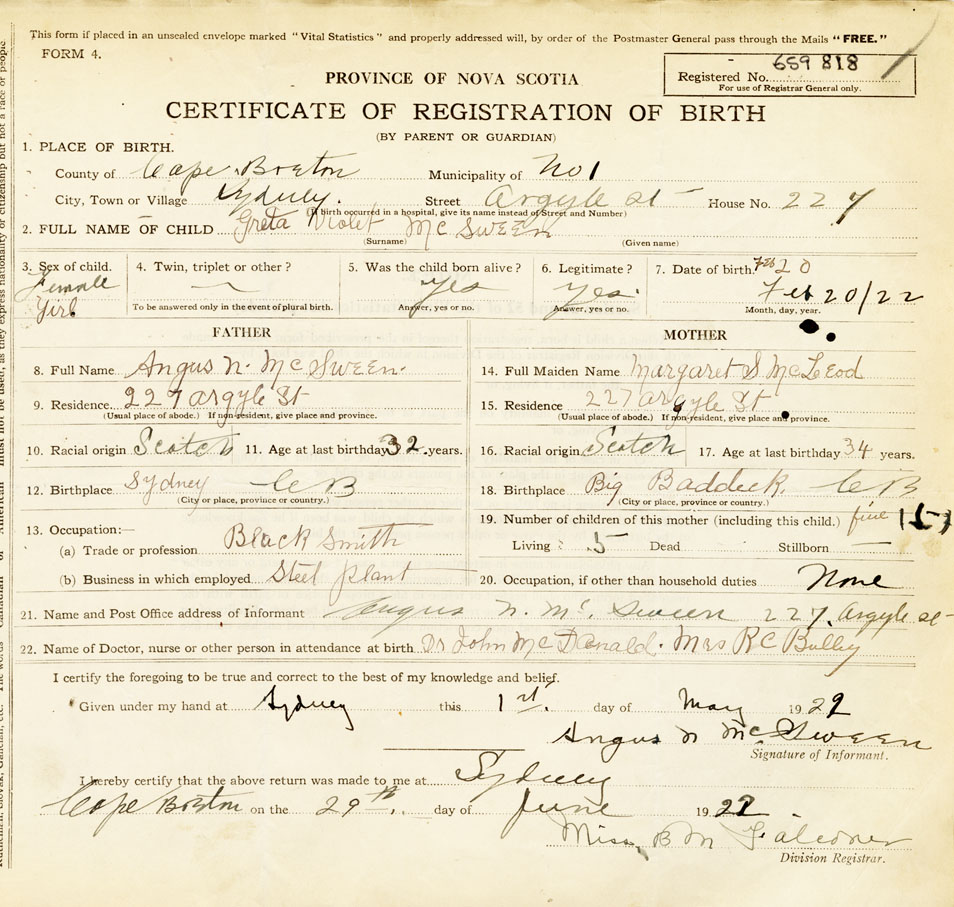 This form if placed in an unsealed envelope marked "Vital Statistics" and properly addressed will, by order of the Postmaster General pass through the Mails "FREE."
FORM 4.
659 818
Registered No.
For use of Registrar General only.
PROVINCE OF NOVA SCOTIA
CERTIFICATE OF REGISTRATION OF BIRTH
(BY PARENT OR GUARDIAN)
1. PLACE OF BIRTH.
County of Cape Breton Municipality of No 1
City, Town or Village Sydney. Street Argyle St House No. 227
(If birth occurred in a hospital, give its name instead of Street and Number)
2. FULL NAME OF CHILD Greta Violet Mc Sween
(Surname) (Given name)
3. Sex of child. Female Girl
4. Twin, triplet or other? —
To be answered only in the event of plural birth.
5. Was the child born alive? Yes
Answer, yes or no.
6. Legitimate? Yes.
Answer, yes or no.
7. Date of birth. Feb 20
Feb 20/22
Month, day, year.
FATHER
8. Full Name Angus N. Mc Sween.
9. Residence 227 Argyle St
(Usual place of abode.) If non-resident, give place and province.
10. Racial origin Scotch 11. Age at last birthday 32 years.
12. Birthplace Sydney C B
(City or place, province or country.)
13. Occupation:—
(a) Trade or profession Black Smith
(b) Business in which employed Steel plant
MOTHER
14. Full Maiden Name Margaret S. McLeod
15. Residence 227 Argyle St
(Usual place of abode.) If non-resident, give place and province.
16. Racial origin Scotch 17. Age at last birthday 34 years.
18. Birthplace Big Baddeck. C B
(City or place, province or country.)
19. Number of children of this mother (including this child.) five
Living 5 Dead Stillborn —
20. Occupation, if other than household duties None
21. Name and Post Office address of Informant Angus N. Mc Sween 227 Argyle St
22. Name of Doctor, nurse or other person in attendance at birth Dr John McDonald. Mrs RC
I certify the foregoing to be true and correct to the best of my knowledge and belief.
Given under my hand at Sydney this 1st. day of May 19
Angus N McSween
Signature of Informant.
I hereby certify that the above return was made to me at Sydney
Cape Breton on the 29th. day of June 1922.
Miss. B M Falconer
Division Registrar.